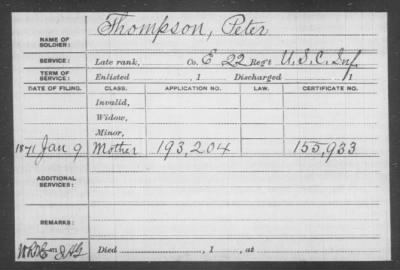 NAME OF SOLDIER: Thompson, Peter
SERVICE: Late rank, Co. E 22 Reg't U.S.C. Inf.
TERM OF SERVICE: Enlisted , 1 Discharged , 1
DATE OF FILING. CLASS. APPLICATION NO. LAW. CERTIFICATE NO.
Invalid,
Widow,
Minor,
1871 Jan 9 Mother 193,204 155,933
ADDITIONAL SERVICES:
REMARKS:
Died , 1 , at